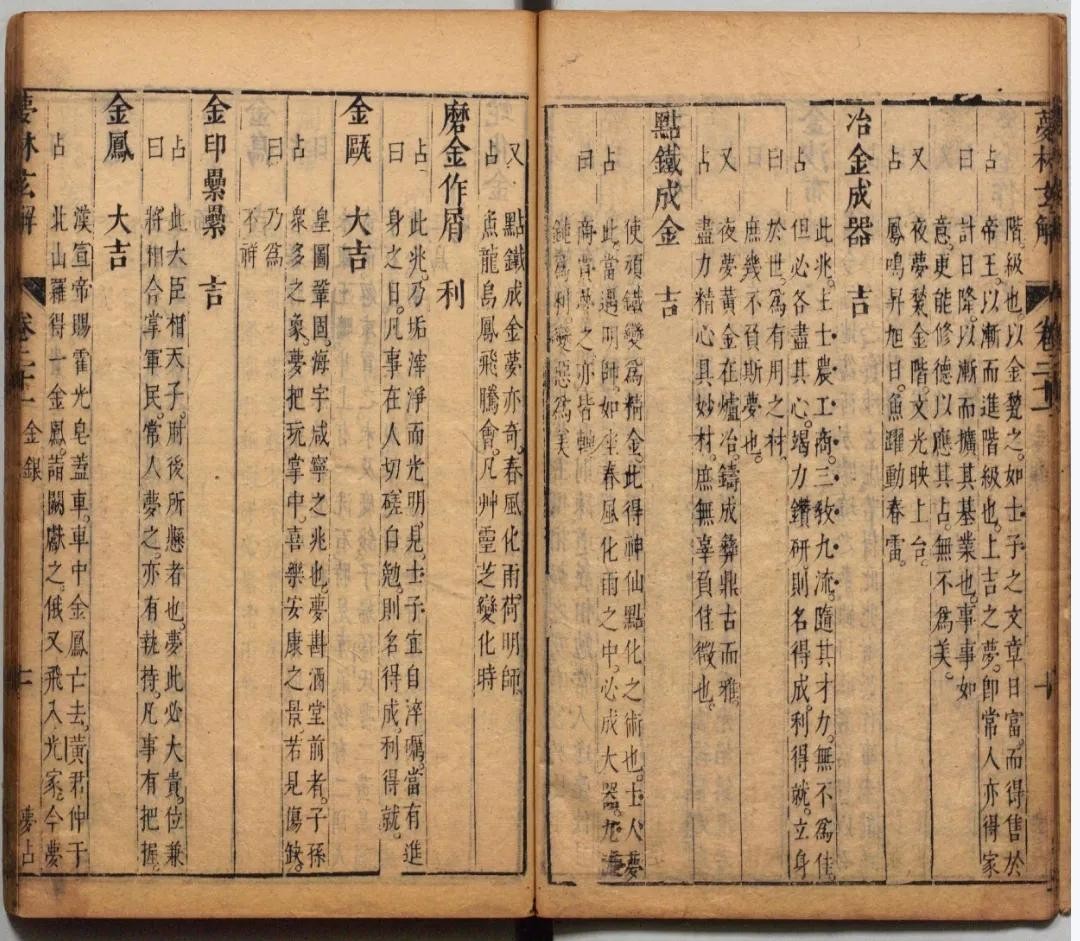 夢林玄解 卷二十一 十
階級也以金甃之如士子之文章日富而得售於
帝王以漸而進階級也上吉之夢即常人亦得家
占
計日隆以漸而擴其基業也事事如
曰
意更能修德以應其占無不爲美
又 夜夢甃金階文光映上台
占 鳳鳴昇旭日魚躍動春雷
冶金成器 吉
此兆士士農工商三教九流隨其才力無不爲佳
占
但必各盡其心竭力鑽研則名得成利得就立身
於世爲有用之材
曰
庶幾不負斯夢也
又 夜夢黃金在爐冶鑄成彝鼎古而雅
占 盡力精心具妙材庶無辜負佳徵也
點鐵成金 吉
使頑鐵變爲精金此得神仙點化之術也士人夢
占
此當遇明師如座春風化雨之中必成大器九流
商賈夢之亦皆轉
曰
鏈爲利變惡爲美
又 點鐵成金夢亦奇春風化雨荷明師
占 魚龍鳥鳳飛騰會凡艸靈芝變化時
磨金作屑 利
占 此兆乃垢滓淨而光明見士子宜自淬礪當有進
曰 身之日凡事在人切磋自勉則名得成利得就
金甌 大吉
皇圖鞏固海宇咸寧之兆也夢斟酒堂前者子孫
占
衆多之象夢把玩掌中喜樂安康之景若見傷缺
乃爲
曰
不祥
金印纍纍 吉
占 此大臣相天子肘後所懸者也夢此必大貴位兼
曰 將相合掌軍民常人夢之亦有執持凡事有把握
金鳳 大吉
漢宣帝賜霍光皂蓋車車中金鳳亡去黃君仲于
占
北山羅得一金鳳詣闕獻之俄又飛入光家今夢
夢林玄解 卷二十一 金銀 十一 夢占